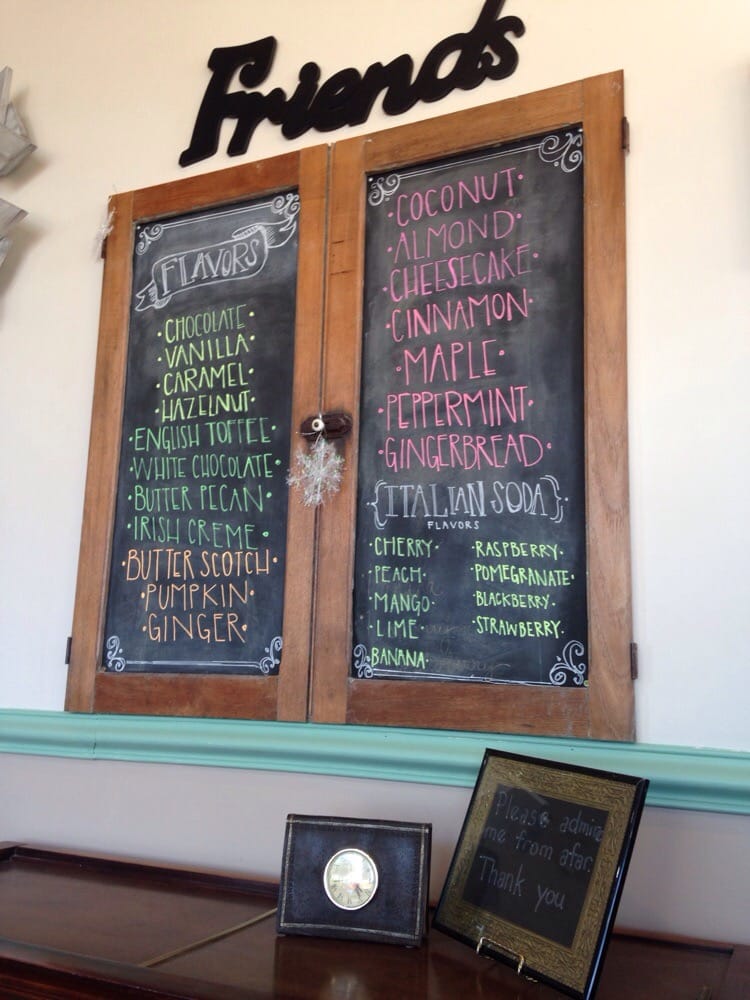 Friends
FLAVORS
·CHOCOLATE·
·VANILLA·
·CARAMEL·
·HAZELNUT·
·ENGLISH TOFFEE·
·WHITE CHOCOLATE·
·BUTTER PECAN·
·IRISH CREME·
·BUTTER SCOTCH·
·PUMPKIN·
·GINGER·
·COCONUT·
·ALMOND·
·CHEESECAKE·
·CINNAMON·
·MAPLE·
·PEPPERMINT·
·GINGERBREAD·
{ITALIAN SODA}
FLAVORS
·CHERRY·
·PEACH·
·MANGO·
·LIME·
·BANANA·
·RASPBERRY·
·POMEGRANATE·
·BLACKBERRY·
·STRAWBERRY·
Please admire
me from afar.
Thank you